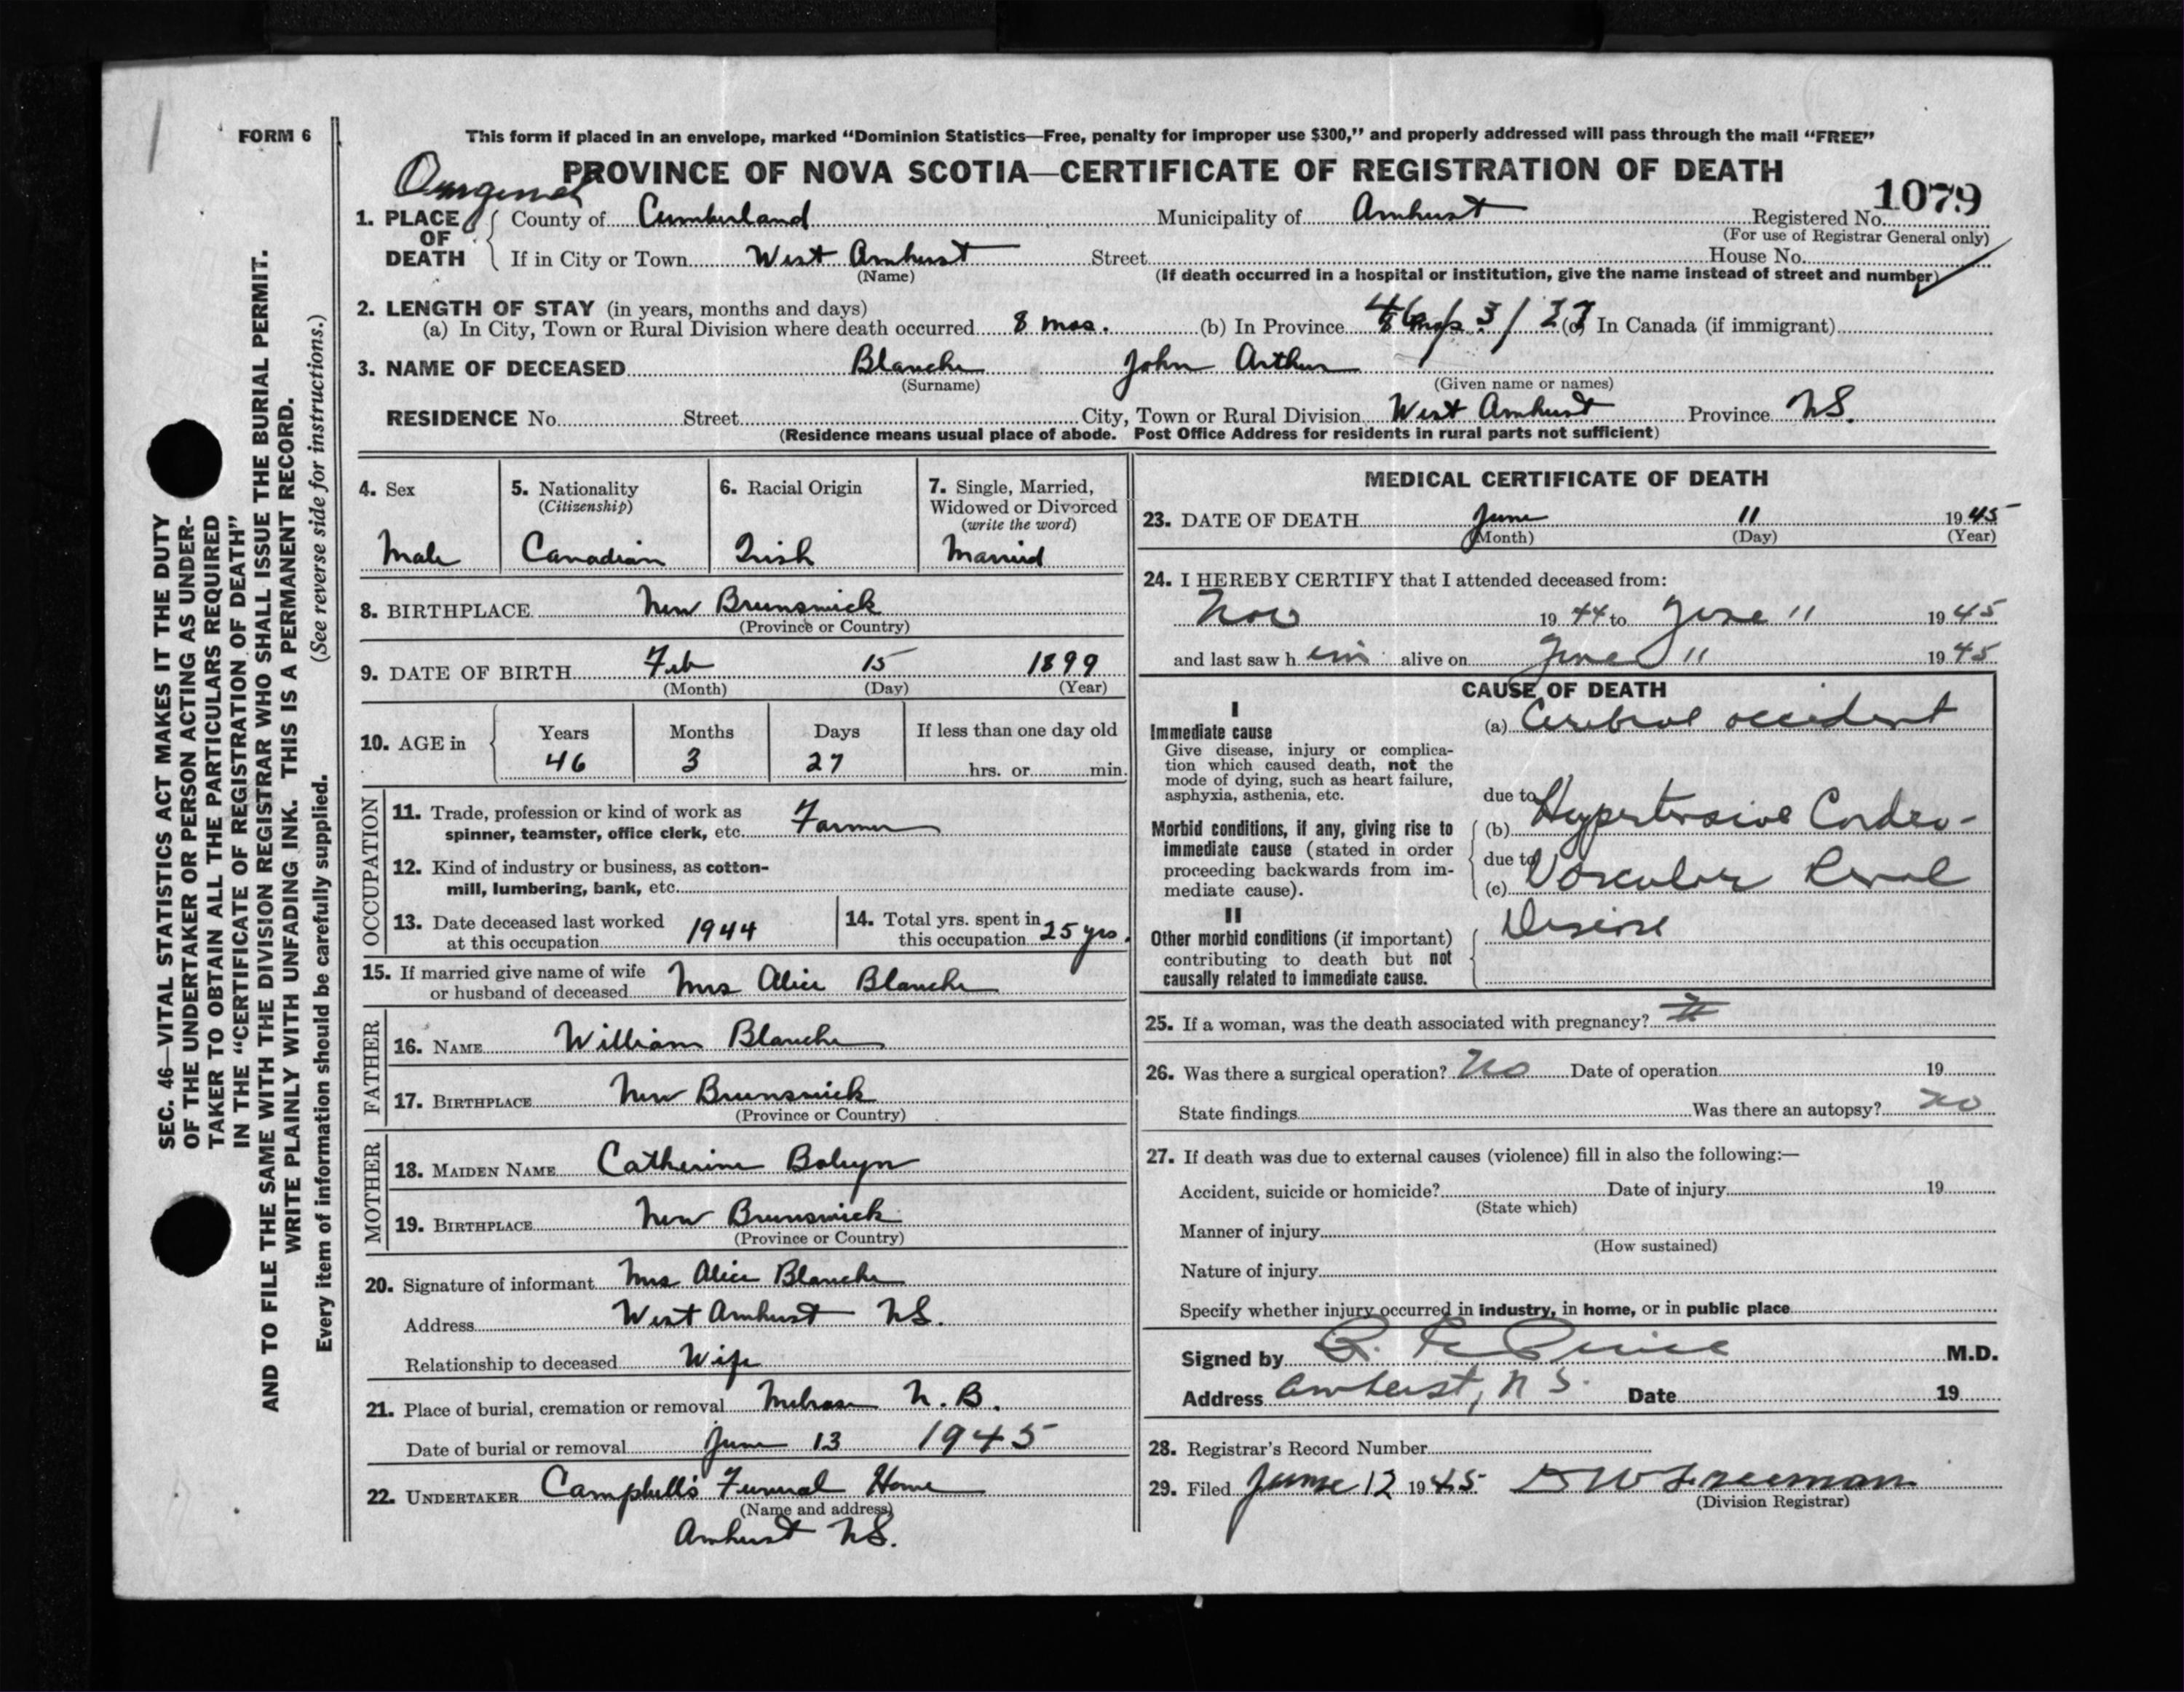 FORM 6
This form if placed in an envelope, marked “Dominion Statistics—Free, penalty for improper use $300,” and properly addressed will pass through the mail “FREE”
PROVINCE OF NOVA SCOTIA—CERTIFICATE OF REGISTRATION OF DEATH
1079
1. PLACE OF DEATH { County of Cumberland Municipality of Amherst Registered No.
(For use of Registrar General only)
If in City or Town West Amherst Street House No.
(Name) (If death occurred in a hospital or institution, give the name instead of street and number)
2. LENGTH OF STAY (in years, months and days)
(a) In City, Town or Rural Division where death occurred 8 mos. (b) In Province 46 / 3 / 27 (c) In Canada (if immigrant)
3. NAME OF DECEASED Blanche John Arthur
(Surname) (Given name or names)
RESIDENCE No. Street City, Town or Rural Division West Amherst Province N.S.
(Residence means usual place of abode. Post Office Address for residents in rural parts not sufficient)
4. Sex
Male
5. Nationality
(Citizenship)
Canadian
6. Racial Origin
Irish
7. Single, Married,
Widowed or Divorced
(write the word)
Married
8. BIRTHPLACE New Brunswick
(Province or Country)
9. DATE OF BIRTH Feb 15 1899
(Month) (Day) (Year)
10. AGE in { Years Months Days If less than one day old
46 3 27 hrs. or min.
OCCUPATION
11. Trade, profession or kind of work as
spinner, teamster, office clerk, etc. Farmer
12. Kind of industry or business, as cotton-
mill, lumbering, bank, etc.
13. Date deceased last worked
at this occupation 1944
14. Total yrs. spent in
this occupation 25 yrs.
15. If married give name of wife
or husband of deceased Mrs Alice Blanche
FATHER
16. NAME William Blanche
17. BIRTHPLACE New Brunswick
(Province or Country)
MOTHER
18. MAIDEN NAME Catherine
19. BIRTHPLACE New Brunswick
(Province or Country)
20. Signature of informant Mrs Alice Blanche
Address West Amherst N.S.
Relationship to deceased Wife
21. Place of burial, cremation or removal Melrose N.B.
Date of burial or removal June 13 1945
22. UNDERTAKER Campbell's Funeral Home
(Name and address)
Amherst N.S.
MEDICAL CERTIFICATE OF DEATH
23. DATE OF DEATH June 11 1945
(Month) (Day) (Year)
24. I HEREBY CERTIFY that I attended deceased from:
Nov 1944 to June 11 1945
and last saw him alive on June 11 1945
CAUSE OF DEATH
I
Immediate cause
Give disease, injury or complica-
tion which caused death, not the
mode of dying, such as heart failure,
asphyxia, asthenia, etc.
(a) Cerebral accident
due to
Morbid conditions, if any, giving rise to
immediate cause (stated in order
proceeding backwards from im-
mediate cause).
(b) Hypertensive Cardio-
due to
(c) Vascular Renal
II
Other morbid conditions (if important)
contributing to death but not
causally related to immediate cause.
Disease
25. If a woman, was the death associated with pregnancy?
26. Was there a surgical operation? No Date of operation 19
State findings Was there an autopsy? No
27. If death was due to external causes (violence) fill in also the following:—
Accident, suicide or homicide? Date of injury 19
(State which)
Manner of injury
(How sustained)
Nature of injury
Specify whether injury occurred in industry, in home, or in public place
Signed by M.D.
Address Amherst, N S. Date 19
28. Registrar's Record Number
29. Filed June 12 1945 D W Freeman
(Division Registrar)
SEC. 46—VITAL STATISTICS ACT MAKES IT THE DUTY
OF THE UNDERTAKER OR PERSON ACTING AS UNDER-
TAKER TO OBTAIN ALL THE PARTICULARS REQUIRED
IN THE “CERTIFICATE OF REGISTRATION OF DEATH”
AND TO FILE THE SAME WITH THE DIVISION REGISTRAR WHO SHALL ISSUE THE BURIAL PERMIT.
WRITE PLAINLY WITH UNFADING INK. THIS IS A PERMANENT RECORD.
Every item of information should be carefully supplied. (See reverse side for instructions.)